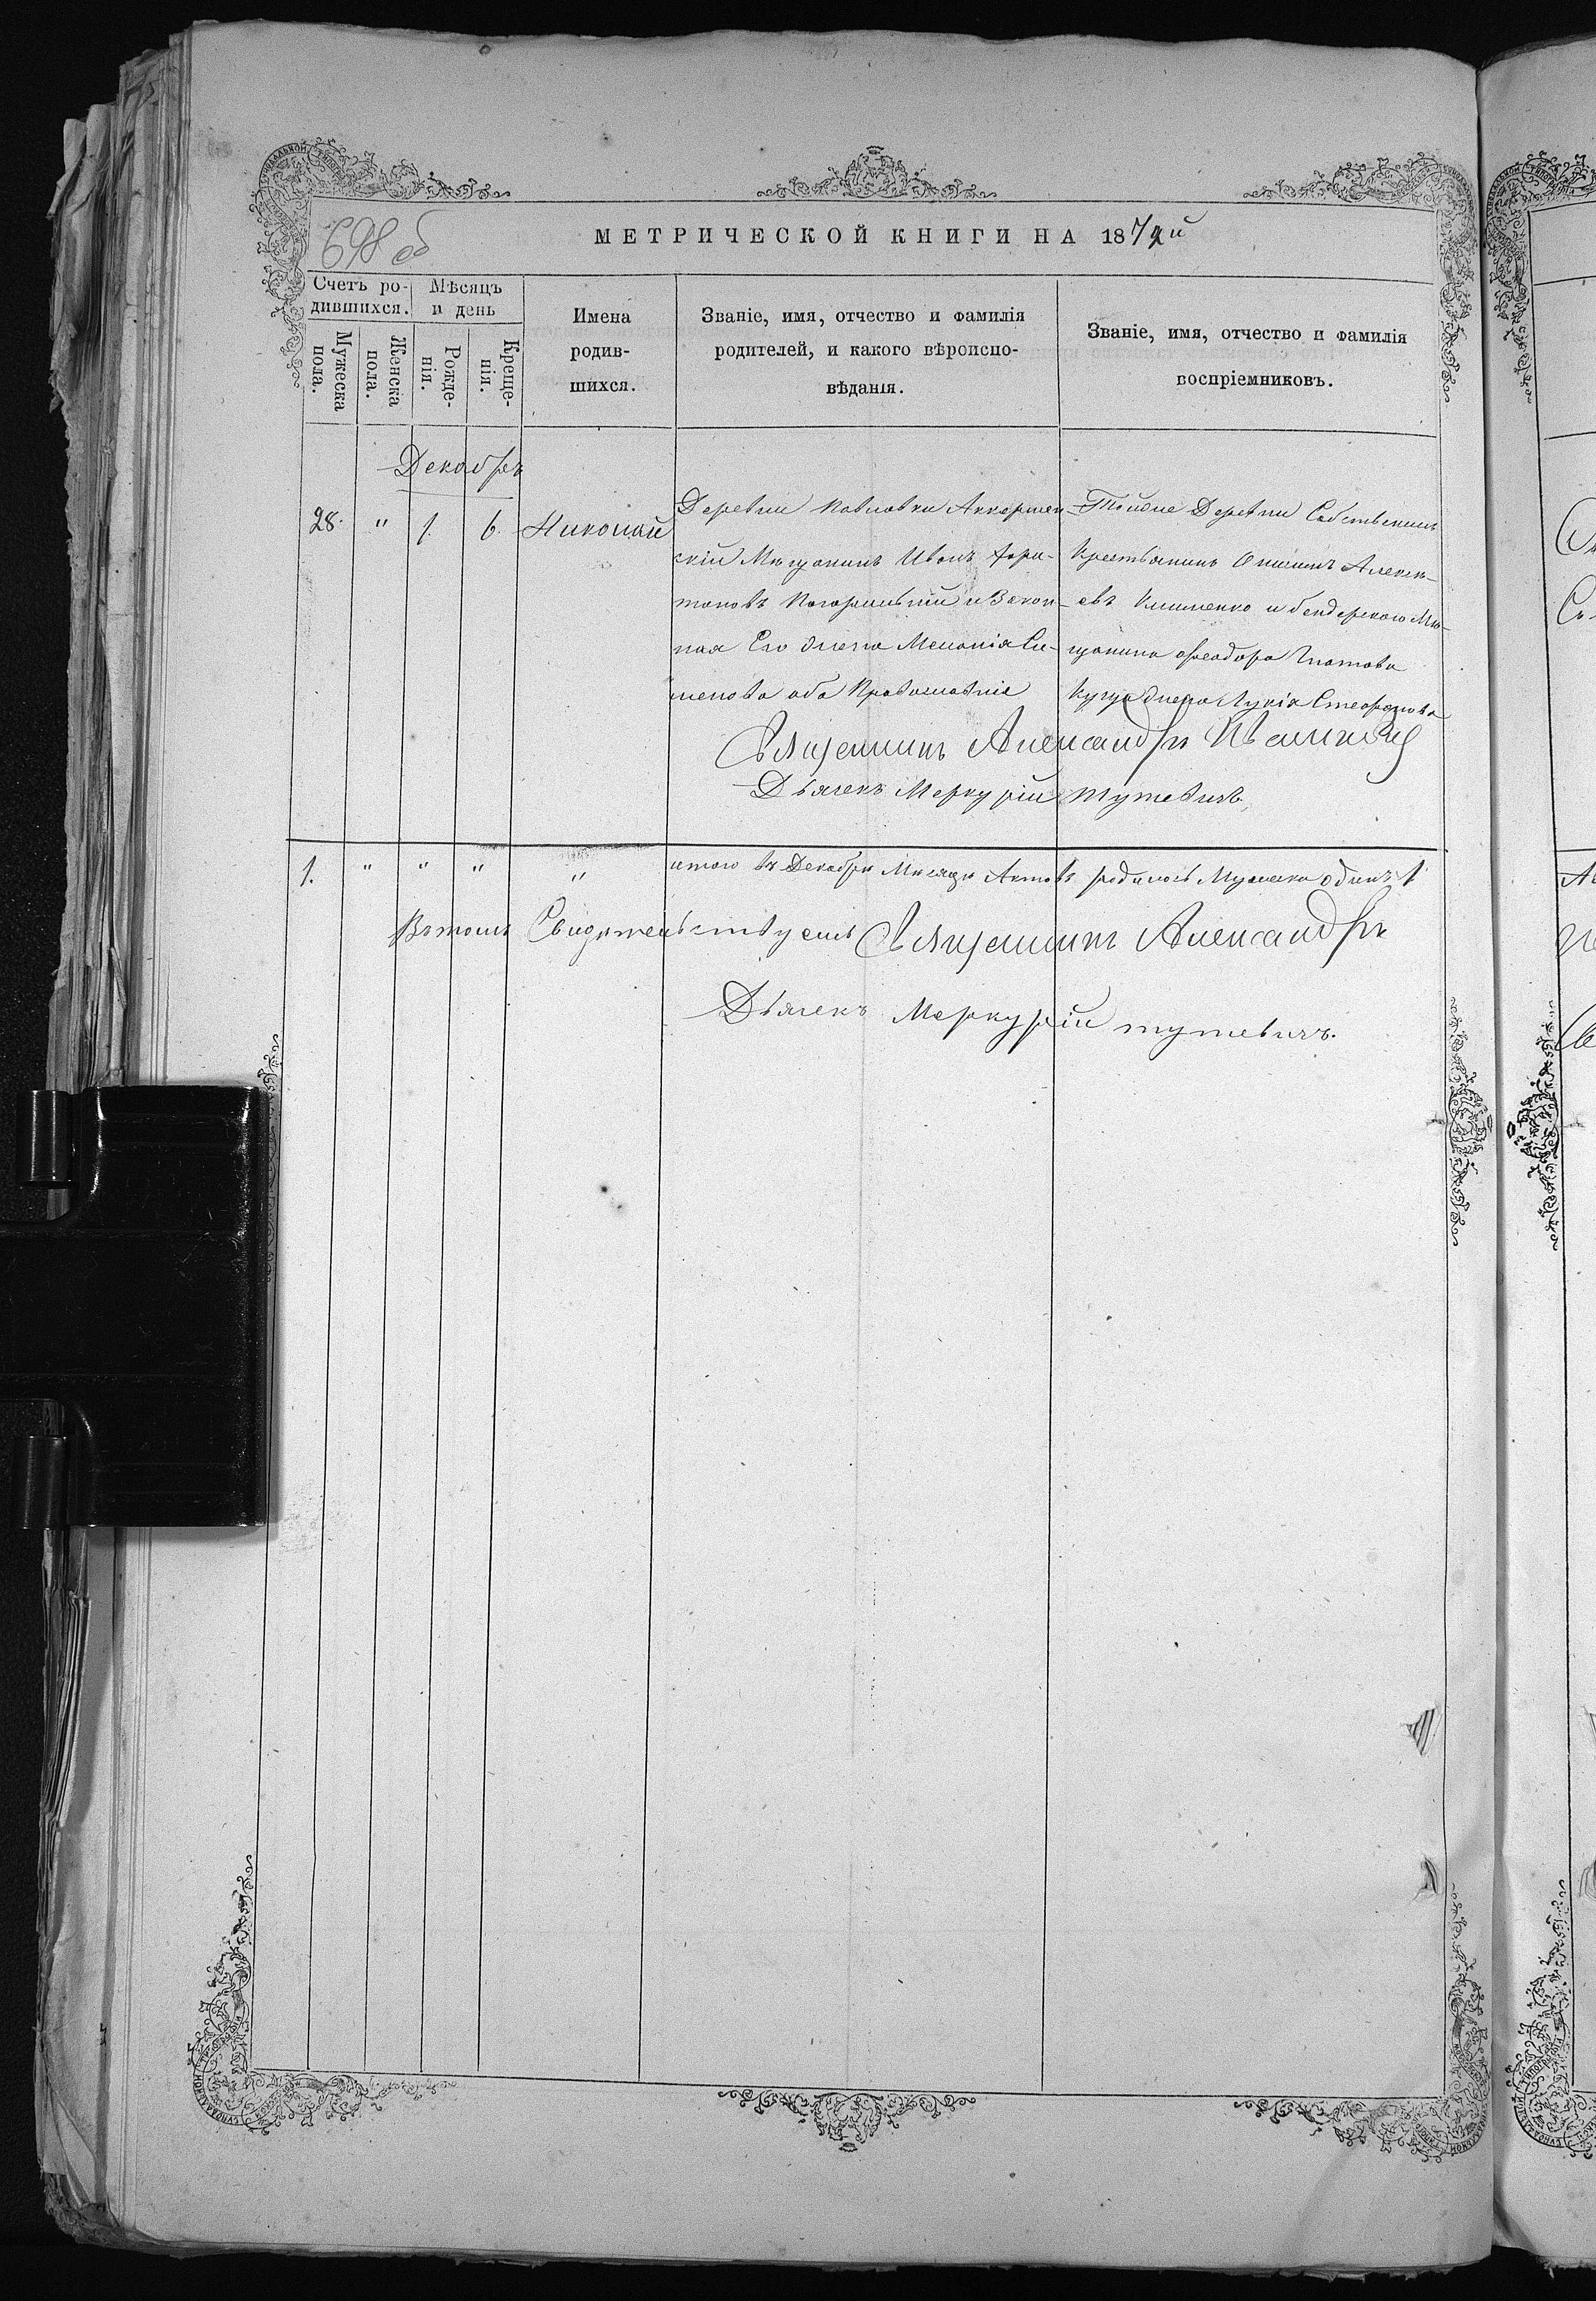 698 об
МЕТРИЧЕСКОЙ КНИГИ НА 1872й
Счетъ ро-
дившихся.
Мѣсяцъ
и день
Мужеска
пола.
Женска
пола.
Рожде-
нія.
Креще-
нія.
Имена
родив-
шихся.
Званіе, имя, отчество и фамилія
родителей, и какого вѣроиспо-
вѣданія.
Званіе, имя, отчество и фамилія
воспріемниковъ.
Декабрь
28. " 1. 6. Николай
Деревни Павловки Аккерман
скій Мѣщанинъ Иванъ Хари-
тоновъ и Закон-
ная Его Жена Меланія Си-
менова оба Православніе
Тойже Деревни Собственикъ
Крестьянинъ Алексѣ-
евъ Клименко и бендерскаго Мѣ-
щанина Феодора Игнатова
жена Лукія Стефанова
Священникъ Александръ
Дьячекъ Меркурій Тутевичъ
1. " " " " итого въ Декабрѣ Мѣсяцѣ Актовъ родилось Мужеска одинъ 1
Вътомъ Свидѣтельствуемъ Священникъ Александръ
Дьячекъ Меркурій тутевичъ.